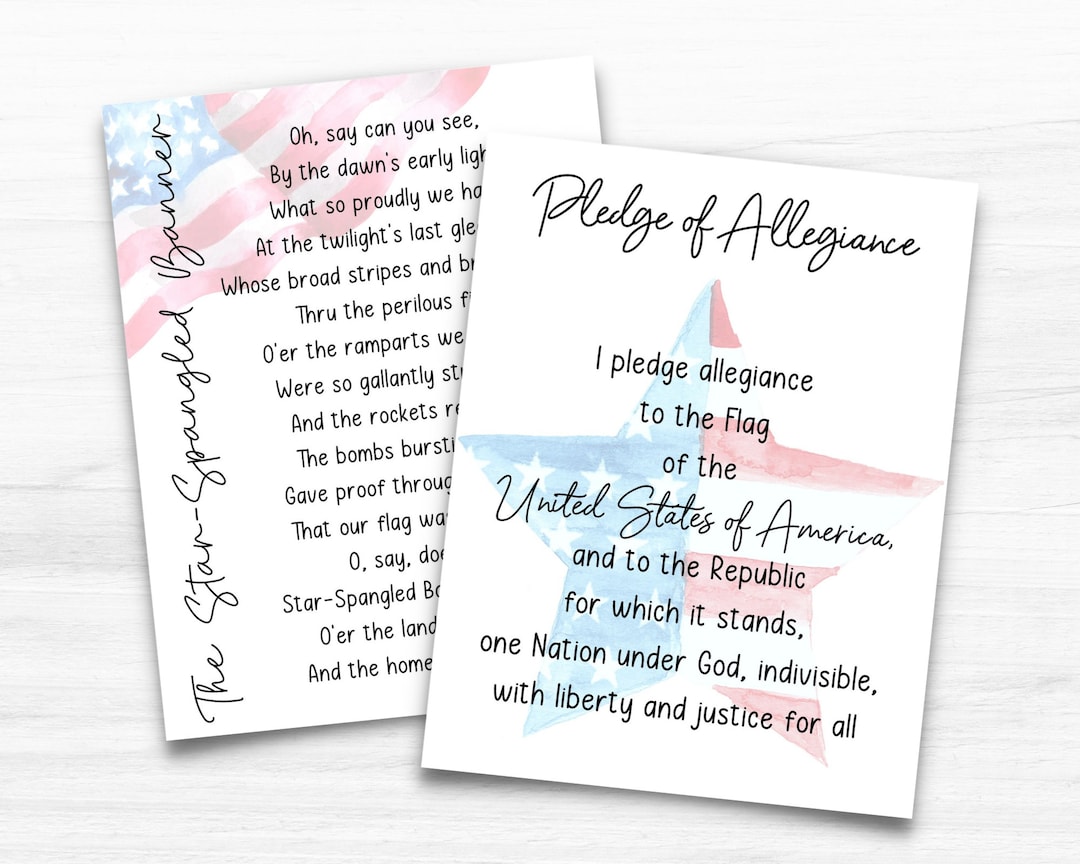 The Star-Spangled Banner
Oh, say can you see,
By the dawn's early
What so proudly we
At the twilight's last
Whose broad stripes and
Thru the perilous
O'er the ramparts we
Were so gallantly
And the rockets
The bombs
Gave proof
That our flag
O, say,
Star-Spangled
O'er the land
And the home
Pledge of Allegiance
I pledge allegiance
to the Flag
of the
United States of America,
and to the Republic
for which it stands,
one Nation under God, indivisible,
with liberty and justice for all